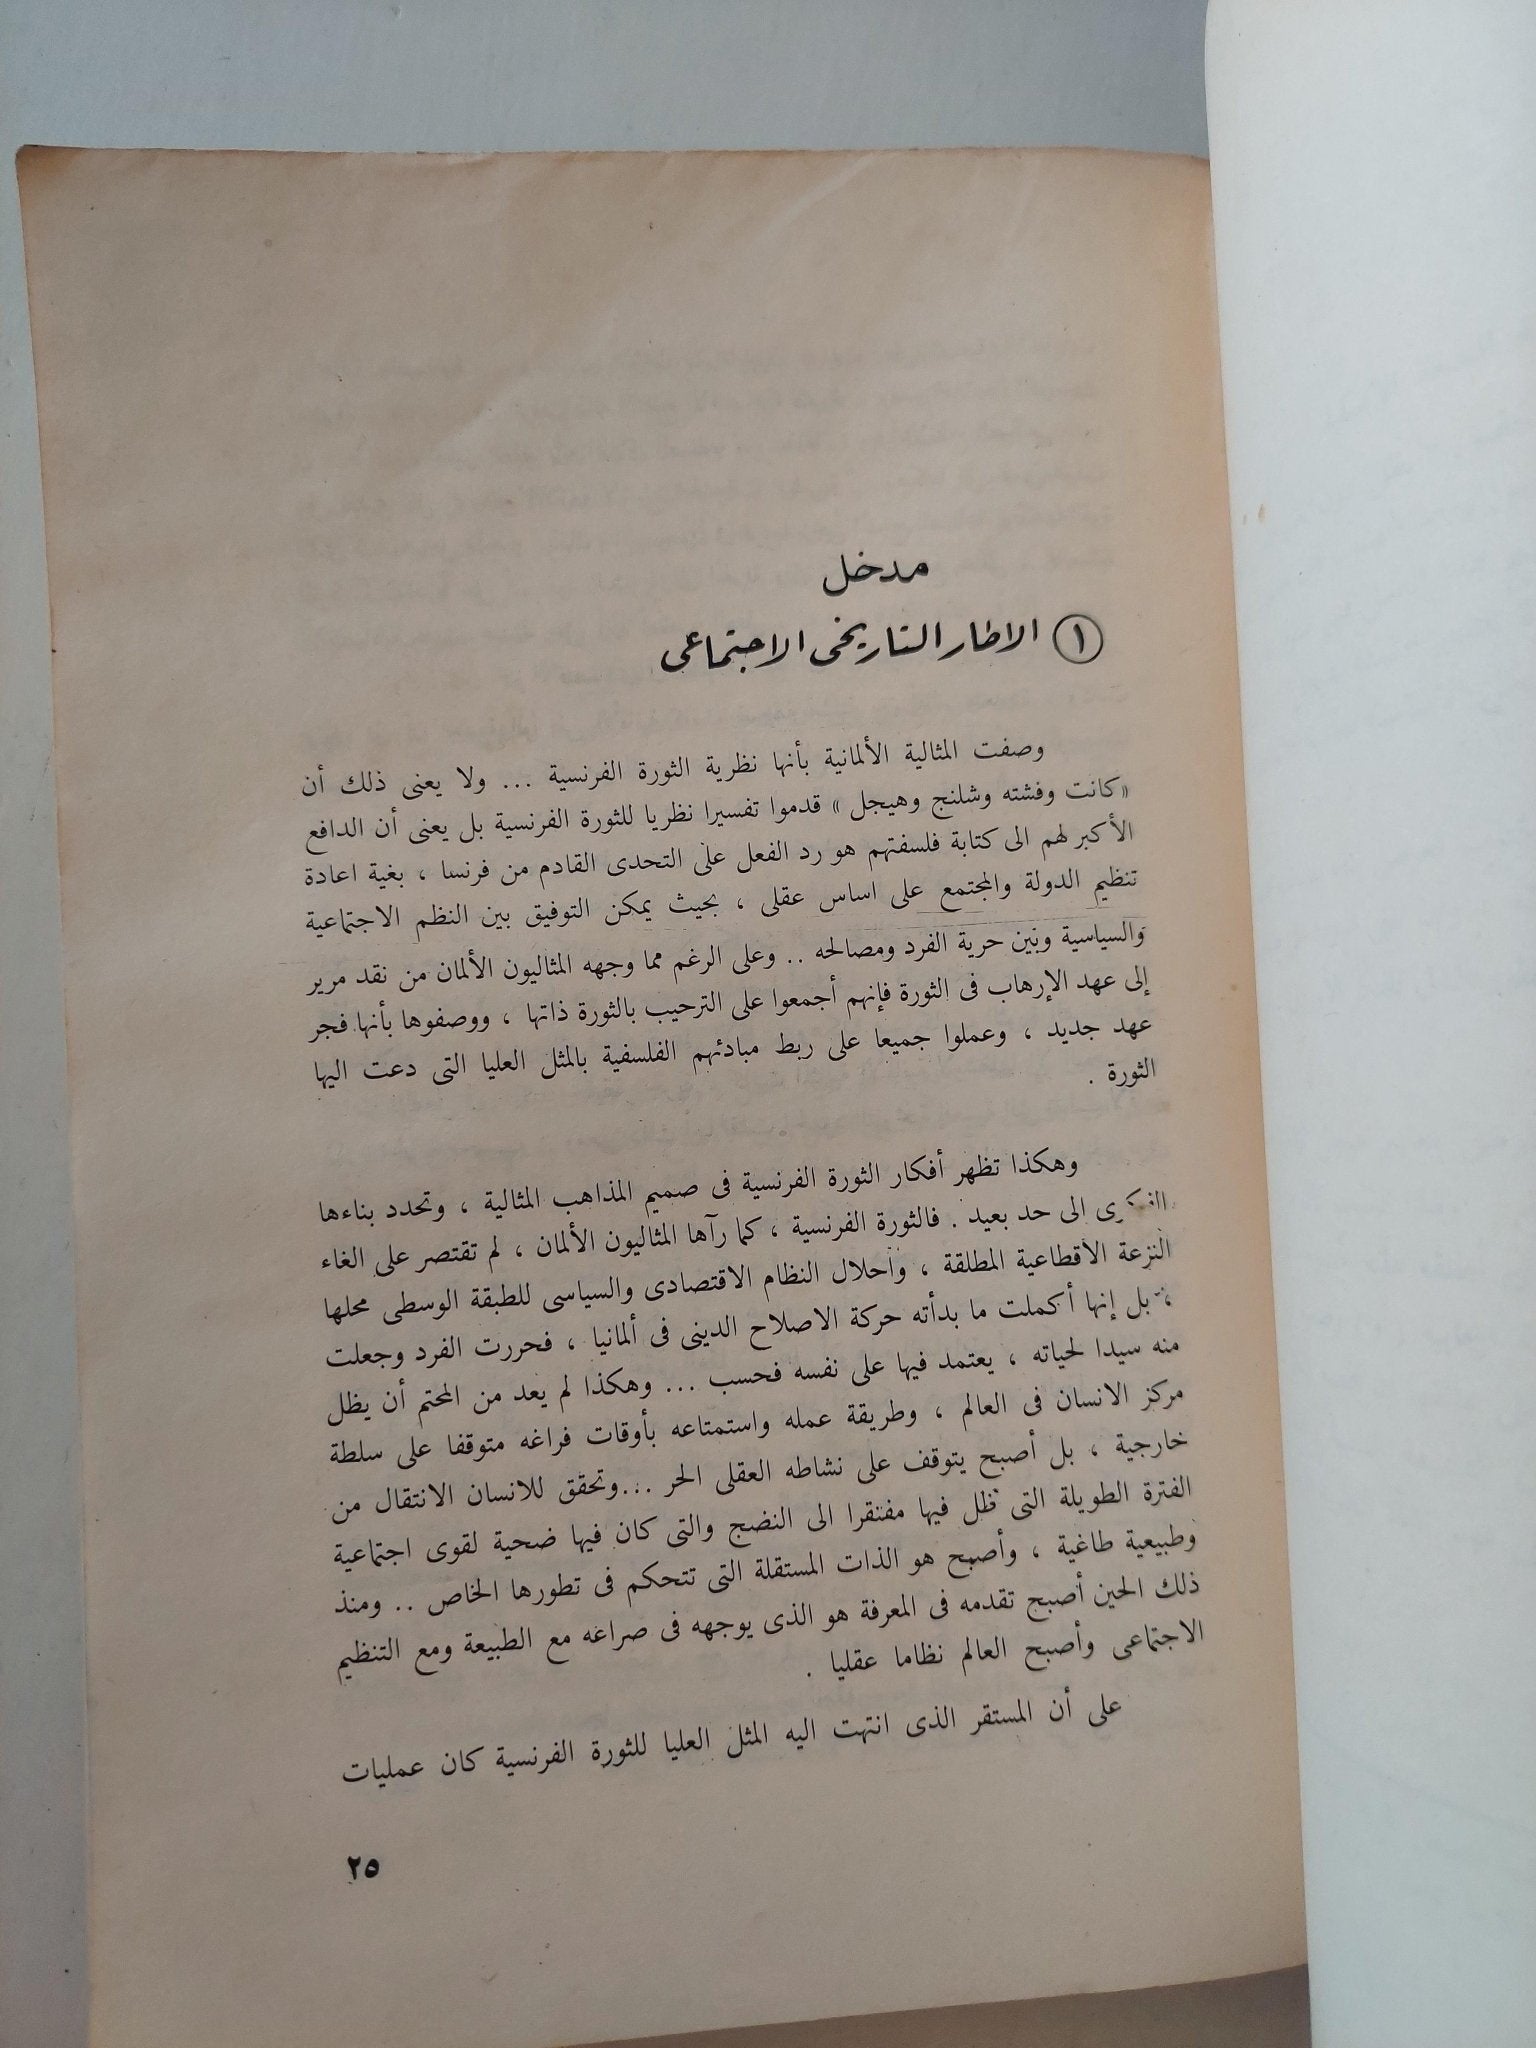 مدخل
١ الاطار التاريخى الاجتماعى
وصفت المثالية الألمانية بأنها نظرية الثورة الفرنسية ... ولا يعنى ذلك أن
« كانت وفشته وشلنج وهيجل » قدموا تفسيرا نظريا للثورة الفرنسية بل يعنى أن الدافع
الأكبر لهم الى كتابة فلسفتهم هو رد الفعل على التحدى القادم من فرنسا ، بغية اعادة
تنظيم الدولة والمجتمع على اساس عقلى ، بحيث يمكن التوفيق بين النظم الاجتماعية
والسياسية وبين حرية الفرد ومصالحه .. وعلى الرغم مما وجهه المثاليون الألمان من نقد مرير
إلى عهد الإرهاب فى الثورة فإنهم أجمعوا على الترحيب بالثورة ذاتها ، ووصفوها بأنها فجر
عهد جديد ، وعملوا جميعا على ربط مبادئهم الفلسفية بالمثل العليا التى دعت اليها
الثورة .
وهكذا تظهر أفكار الثورة الفرنسية فى صميم المذاهب المثالية ، وتحدد بناءها
الى حد بعيد . فالثورة الفرنسية ، كما رآها المثاليون الألمان ، لم تقتصر على الغاء
النزعة الأقطاعية المطلقة ، وأحلال النظام الاقتصادى والسياسى للطبقة الوسطى محلها
، بل إنها أكملت ما بدأته حركة الاصلاح الدينى فى ألمانيا ، فحررت الفرد وجعلت
منه سيدا لحياته ، يعتمد فيها على نفسه فحسب ... وهكذا لم يعد من المحتم أن يظل
مركز الانسان فى العالم ، وطريقة عمله واستمتاعه بأوقات فراغه متوقفا على سلطة
خارجية ، بل أصبح يتوقف على نشاطه العقلى الحر ...وتحقق للانسان الانتقال من
الفترة الطويلة التى ظل فيها مفتقرا الى النضج والتى كان فيها ضحية لقوى اجتماعية
وطبيعية طاغية ، وأصبح هو الذات المستقلة التى تتحكم فى تطورها الخاص .. ومنذ
ذلك الحين أصبح تقدمه فى المعرفة هو الذى يوجهه فى صراعه مع الطبيعة ومع التنظيم
الاجتماعى وأصبح العالم نظاما عقليا .
على أن المستقر الذى انتهت اليه المثل العليا للثورة الفرنسية كان عمليات
٢٥